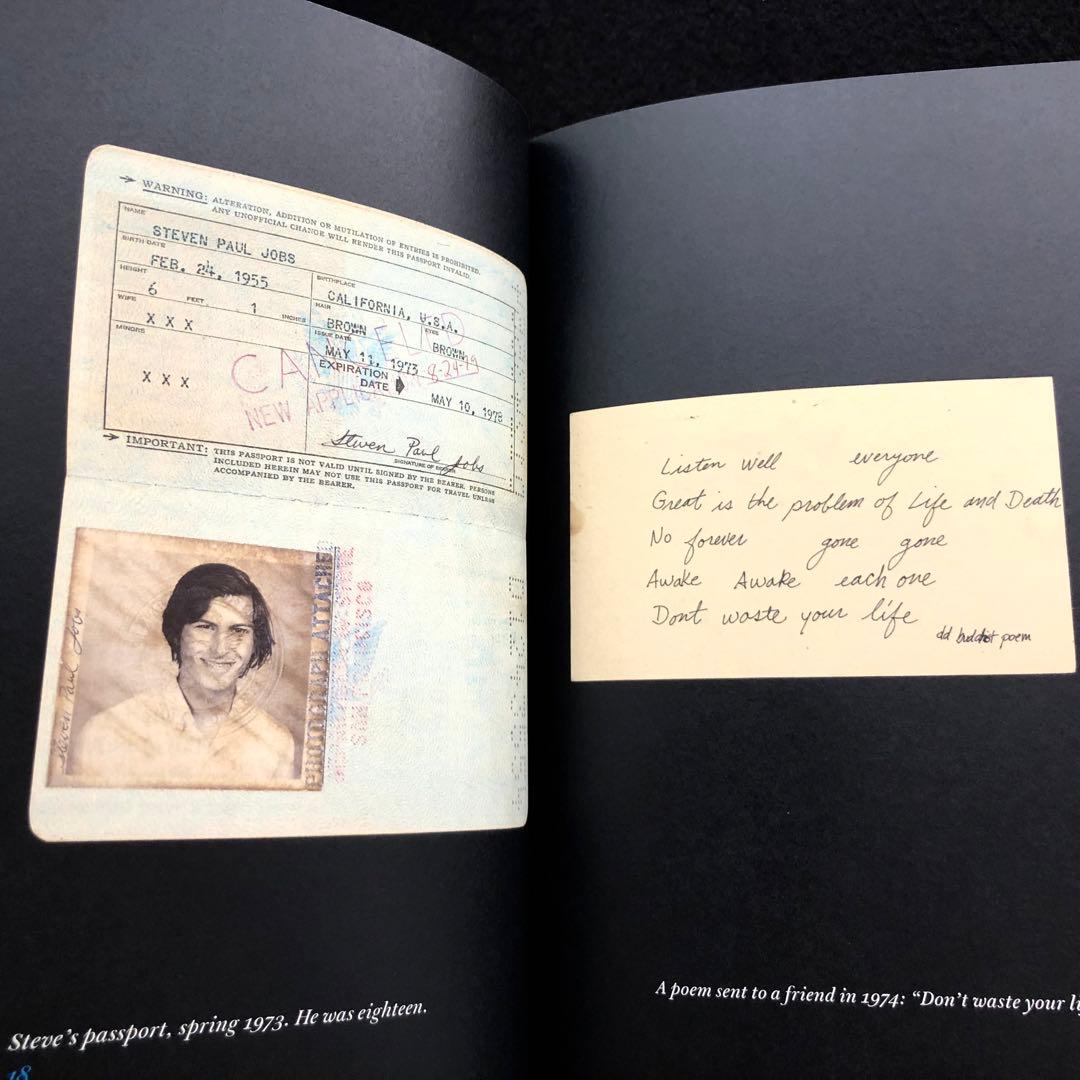 WARNING: ALTERATION, ADDITION OR MUTILATION OF ENTRIES IS PROHIBITED.
ANY UNOFFICIAL CHANGE WILL RENDER THIS PASSPORT INVALID.
NAME
STEVEN PAUL JOBS
BIRTH DATE
FEB. 24, 1955
BIRTHPLACE
CALIFORNIA, U.S.A.
HEIGHT
6 FEET 1 INCHES
HAIR
BROWN
EYES
BROWN
WIFE
X X X
ISSUE DATE
MAY 11, 1973
MINORS
X X X
EXPIRATION
DATE
MAY 10, 1978
CANCELLED
NEW APPLICATION 8-24-79
Steven Paul Jobs
SIGNATURE OF BEARER
IMPORTANT: THIS PASSPORT IS NOT VALID UNTIL SIGNED BY THE BEARER. PERSONS
INCLUDED HEREIN MAY NOT USE THIS PASSPORT FOR TRAVEL UNLESS
ACCOMPANIED BY THE BEARER.
Steven Paul Jobs
PHOTOGRAPH ATTACHED
SAN FRANCISCO
Steve's passport, spring 1973. He was eighteen.
18
Listen well everyone
Great is the problem of Life and Death
No forever gone gone
Awake Awake each one
Dont waste your life
buddhist poem
A poem sent to a friend in 1974: “Don't waste your